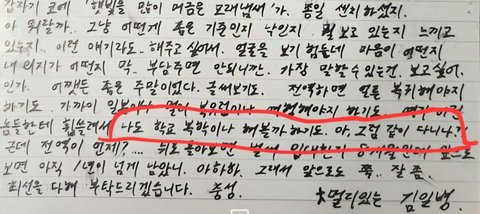 갑자기 코에 '햇빛을 많이 머금은 모래냄새'가. 종일 센티하셨지.
아 뭐랄까.. 그냥 어떻게 좁은 기준인지 낙인지 뭘 보고 있는지 느끼고
있는지.. 이런 얘기라도 해주고 싶어서. 얼굴을 보기 힘든데 마음이 어떤지
내 의지가 어떤지 막 부담주면 안되니깐. 가장 말할 수 있는건. 보고싶어.
인가. 어쨌든 좋은 주말이었다. 글써보기도. 전역하면 얼른 복귀해야지
하기도. 가까이 일본에서 멀리 북유럽이나 여행해야지 하기도.
놈들한테 휩쓸려서 나도 학교 복학이나 해볼까 하기도. 아, 그럼 같이 다니나?
근데 전역이 언제?.... 뒤로 돌아보면 벌써 입대한지 8개월인데 앞으로
보면 아직 1년이 넘게 남았니. 아하하. 그래서 앞으로도 쭉. 잘 좀.
최선을 다해 부탁드리겠습니다. 충성.
멀리있는 김일병